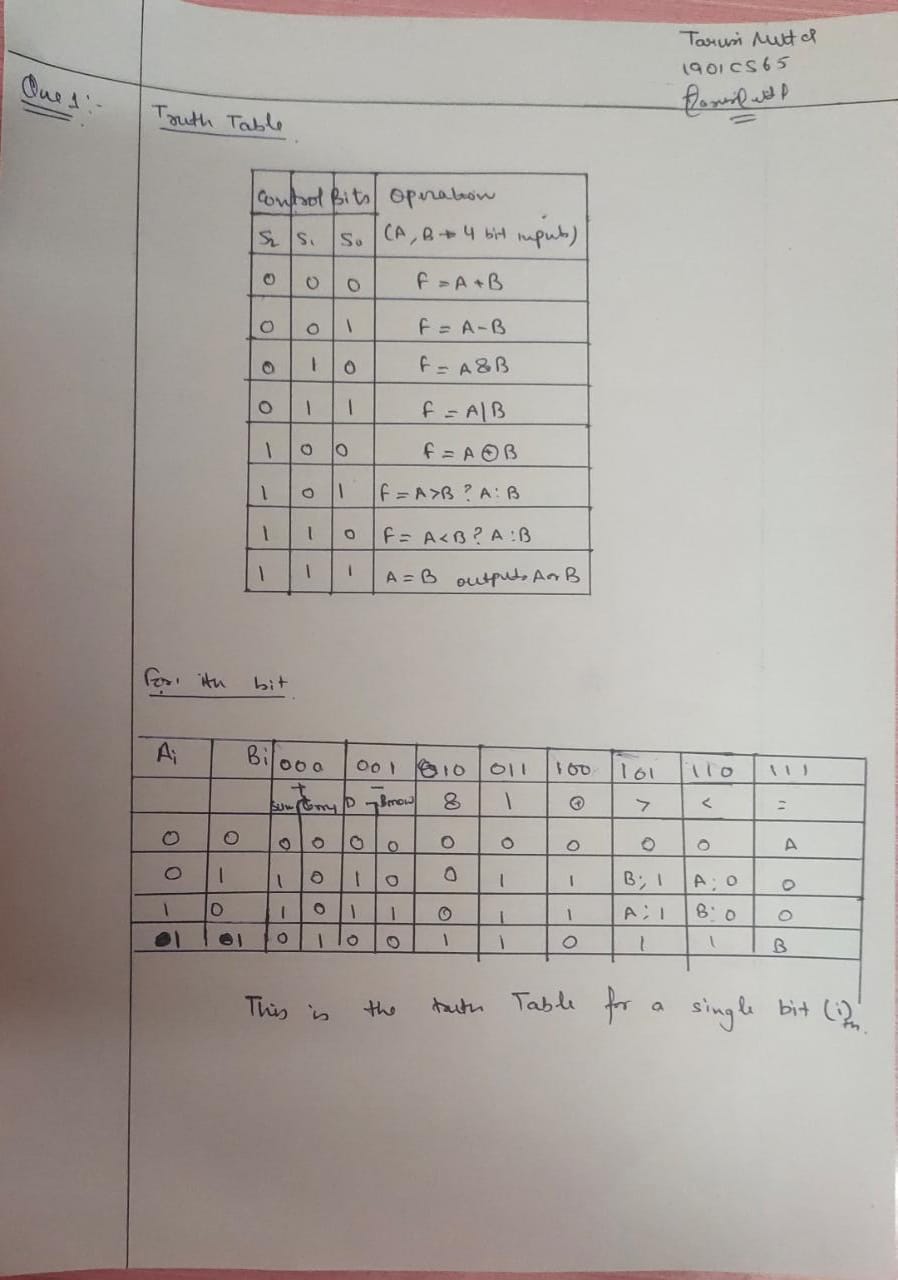 1901CS65
Que 1:-
Truth Table
Control Bits Operation
S2 S1 S0 (A, B → 4 bit inputs)
0 0 0 f = A + B
0 0 1 f = A - B
0 1 0 f = A & B
0 1 1 f = A | B
1 0 0 f = A ⊕ B
1 0 1 f = A > B ? A : B
1 1 0 f = A < B ? A : B
1 1 1 A = B outputs A or B
For ith bit
Ai Bi 000 001 010 011 100 101 110 111
+ - & | ⊕ > < =
Sum Carry D Brrow
0 0 0 0 0 0 0 0 0 0 0 A
0 1 1 0 1 0 0 1 1 B; 1 A: 0 0
1 0 1 0 1 1 0 1 1 A; 1 B: 0 0
1 1 0 1 0 0 1 1 0 1 1 B
This is the truth Table for a single bit (i)th.